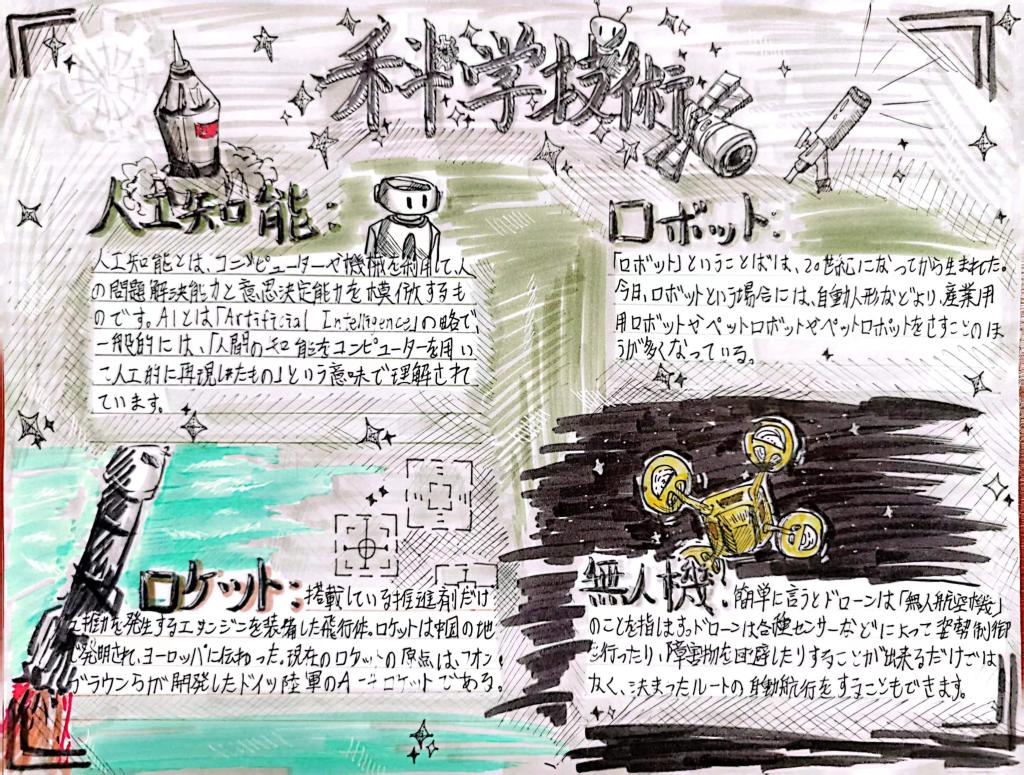 科学技術
人工知能：
人工知能とは、コンピューターや機械を利用して、人
の問題解決能力と意思決定能力を模倣するも
のです。AIとは「Artificial Intelligence」の略で、
一般的には、「人間の知能をコンピューターを用い
て人工的に再現したもの」という意味で理解され
ています。
ロボット：
「ロボット」ということばは、20世紀になってから生まれた。
今日、ロボットという場合には、自動人形などより、産業用
用ロボットやペットロボットやペットロボットをさすことのほ
うが多くなっている。
ロケット：
搭載している推進剤だけ
推力を発生するエンジンを装備した飛行体。ロケットは中国の地
発明され、ヨーロッパに伝わった。現在のロケットの原点は、フォン
ブラウンらが開発したドイツ陸軍のA-4ロケットである。
無人機：
簡単に言うとドローンは「無人航空機」
のことを指します。ドローンは各種センサーなどによって姿勢制御
を行ったり、障害物を回避したりすることが出来るだけでは
なく、決まったルートの自動航行をすることもできます。